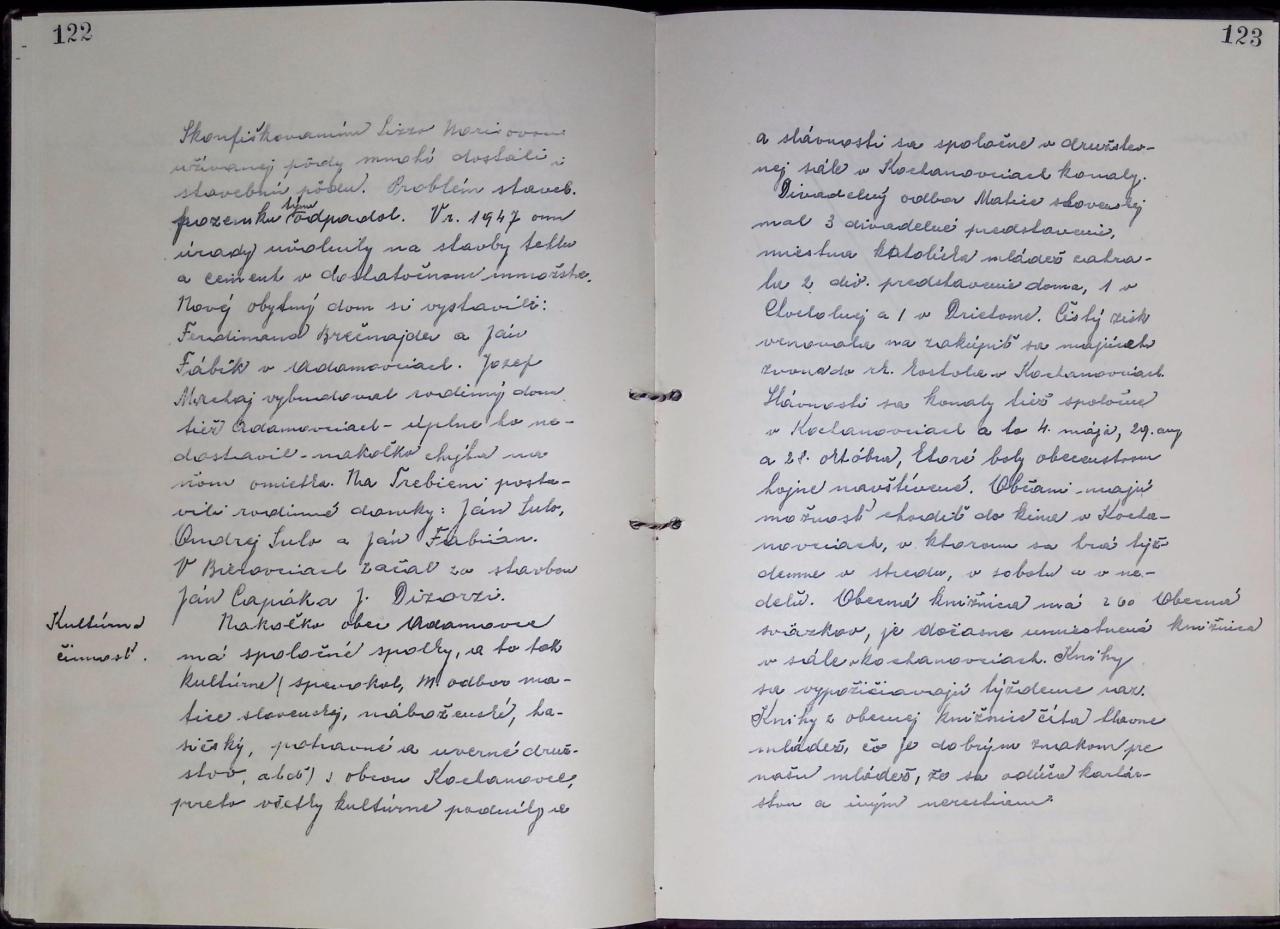 122
Skonfiškovaním
užívanej pôdy mnohí dostáli i
stavebnú pôdu. Problém staveb.
pozemku týmto odpadol. V r. 1947 oni
úrady uvolnily na stavby tehlu
a cement v dostatočnom množstve.
Nový obytný dom si vystavili:
Ferdinand Brečnajder a Ján
Fábik v Adamovciach. Jozef
Mrchaj vybudoval rodinný dom
tiež Adamovciach - úplne ho ne-
dostavil - nakolko chýba na
ňom omietka. Na Trebieni posta-
vili rodinné domky: Ján Sulo,
Ondrej Sulo a Ján Fabián.
V Bierovciach začal zo stavbou
Ján Capák a J. Dizorzi.
Kultúrna
činnosť.
Nakolko obec Adamovce
má spoločné spolky, a to tak
kultúrne (spevokol, M. odbor ma-
tice slovenskej, náboženské, ha-
sičský, potravné a uverné druž-
stvo, atď) s obcou Kochanovce,
preto všetky kultúrne podniky a
123
a slávnosti sa spoločne v družstev-
nej sále v Kochanovciach konaly.
Divadelný odbor Matice slovenskej
mal 3 divadelné predstavenie,
miestna katolícka mládež zahra-
la 2 div. predstavenie doma, 1 v
Chocholnej a 1 v Drietome. Čistý zisk
venovala na zakúpiť sa majúceh
zvona do rk. kostola v Kochanovciach.
Slávnosti sa konaly tiež spoločne
v Kochanovciach a to 4. mája, 29. aug
a 28. októbra, ktoré boly obecenstvom
hojne navštívené. Občani majú
možnosť chodiť do kina v Kocha-
novciach, v ktorom sa hrá týž-
denne v stredu, v sobotu a v ne-
deľu. Obecná knižnica má 260
Obecná
knižnica
sväzkov, je dočasne umiestnená
v sále v Kochanovciach. Knihy
sa vypožičiavajú týždenne raz.
Knihy z obecnej knižnice číta hlavne
mládež, čo je dobrým znakom pre
našu mládež, že sa odúča kartár-
stvu a iným nerestiam.